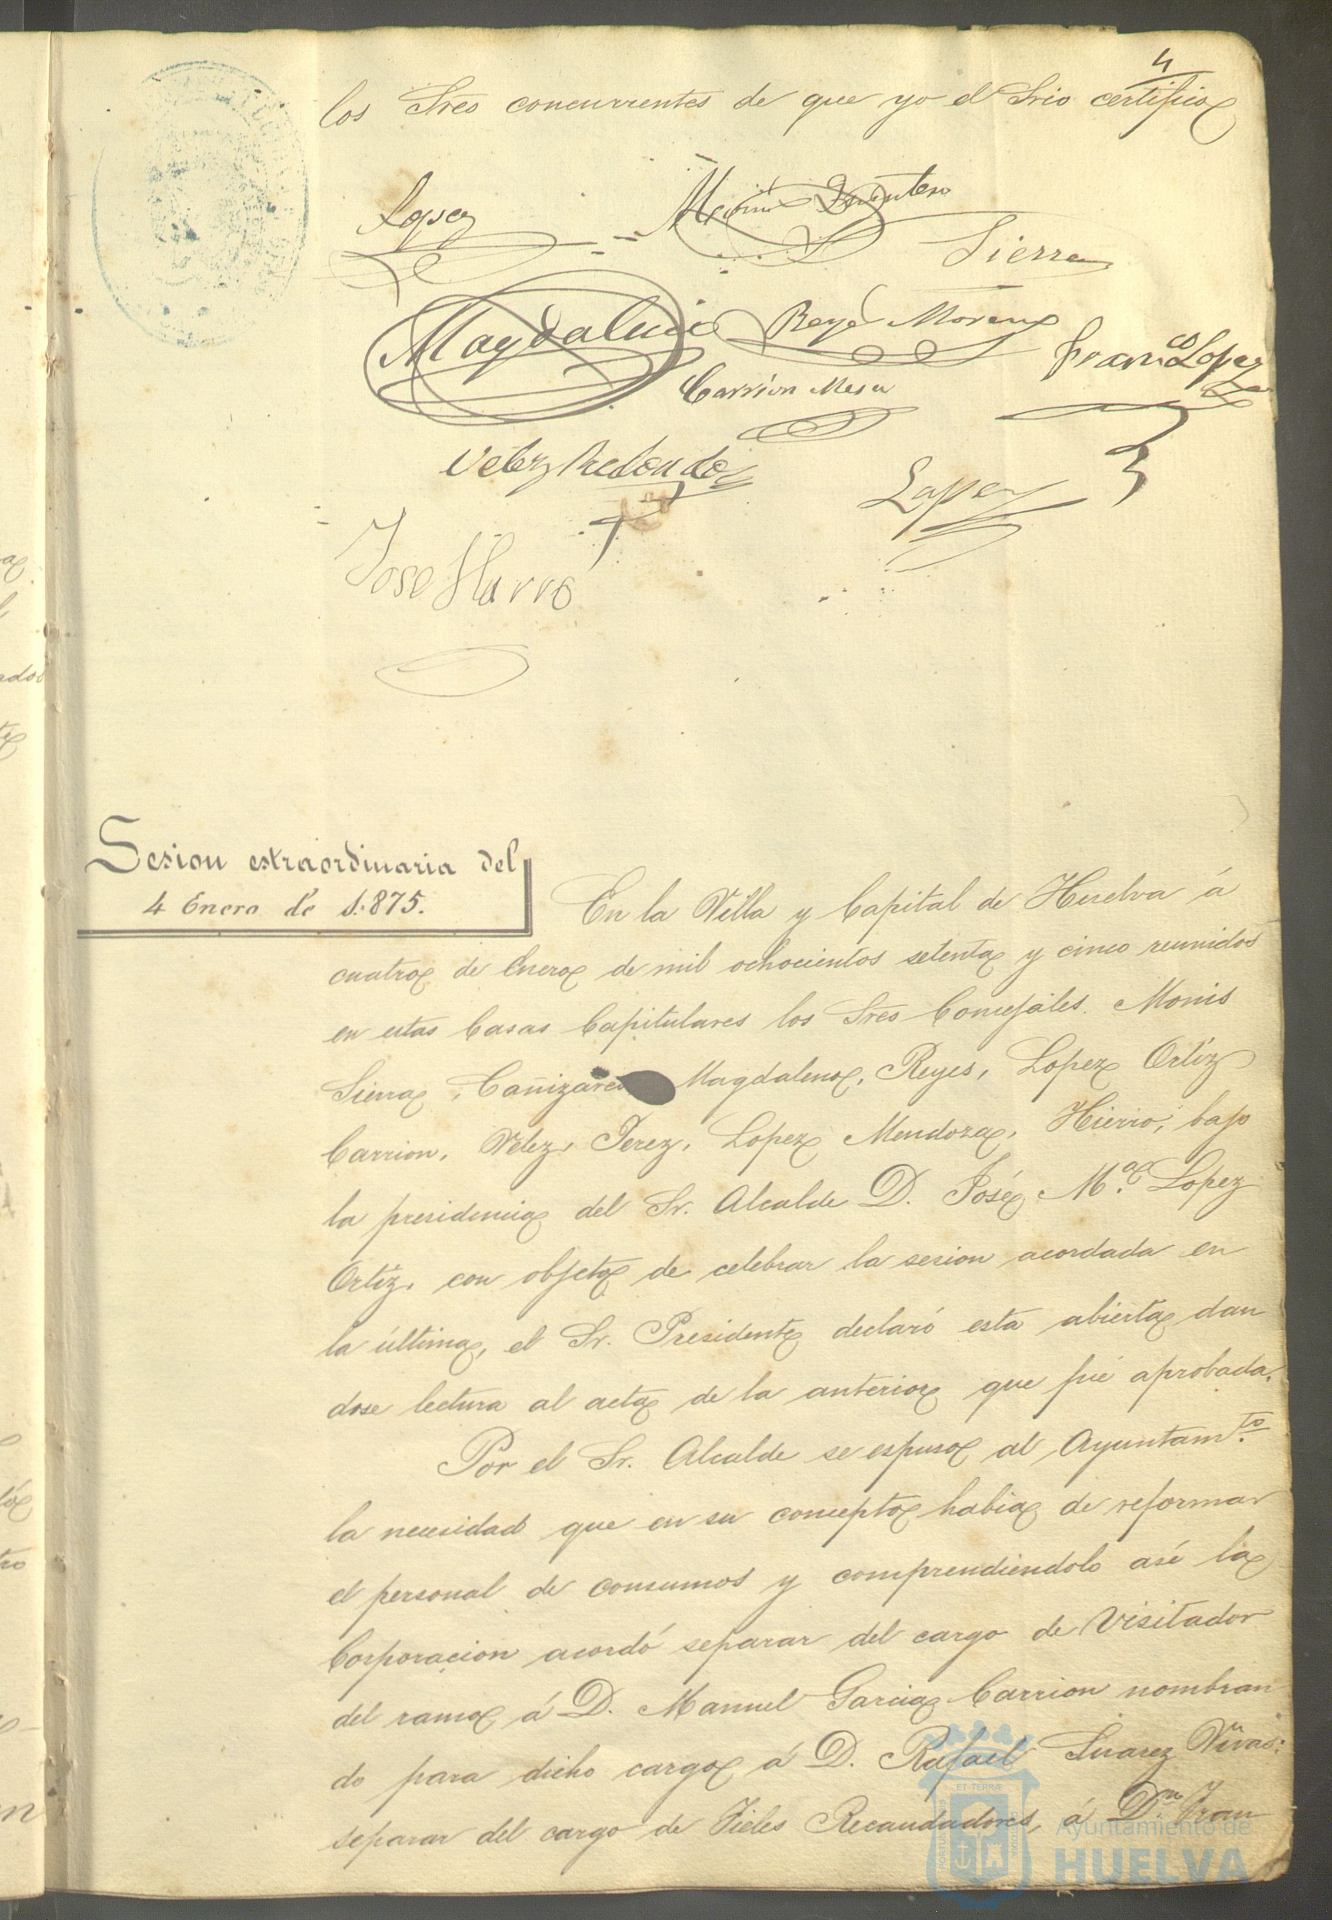 4
los Sres concurrentes de que yo el Srio certifico
Lopez
Quintero
Sierra
Magdalena
Reyes Moreno
Franco Lopez
Carrion Mesa
Velez Redondo
Lopez
Jose Hierro
Sesion estraordinaria del
4 Enero de 1.875.
En la Villa y Capital de Huelva á
cuatro de Enero de mil ochocientos setenta y cinco reunidos
en estas Casas Capitulares los Sres Concejales. Monis
Sierra, Cañizares Magdalena, Reyes, Lopez Ortiz
Carrion, Velez, Perez, Lopez Mendoza, Hierro, bajo
la presidencia del Sr. Alcalde D. José M.ª Lopez
Ortiz, con objeto de celebrar la sesion acordada en
la última, el Sr. Presidente declaró esta abierta dan
dose lectura al acta de la anterior que fué aprobada.
Por el Sr. Alcalde se espuso al Ayuntam.to
la necesidad que en su concepto habia de reformar
el personal de consumos y comprendiendolo asi la
Corporacion acordó separar del cargo de Visitador
del ramo á D. Manuel Garcia Carrion nombran
do para dicho cargo á D. Rafael Suarez Vivas:
separar del cargo de Fieles Recaudadores, á D.n Fran
Ayuntamiento de
HUELVA